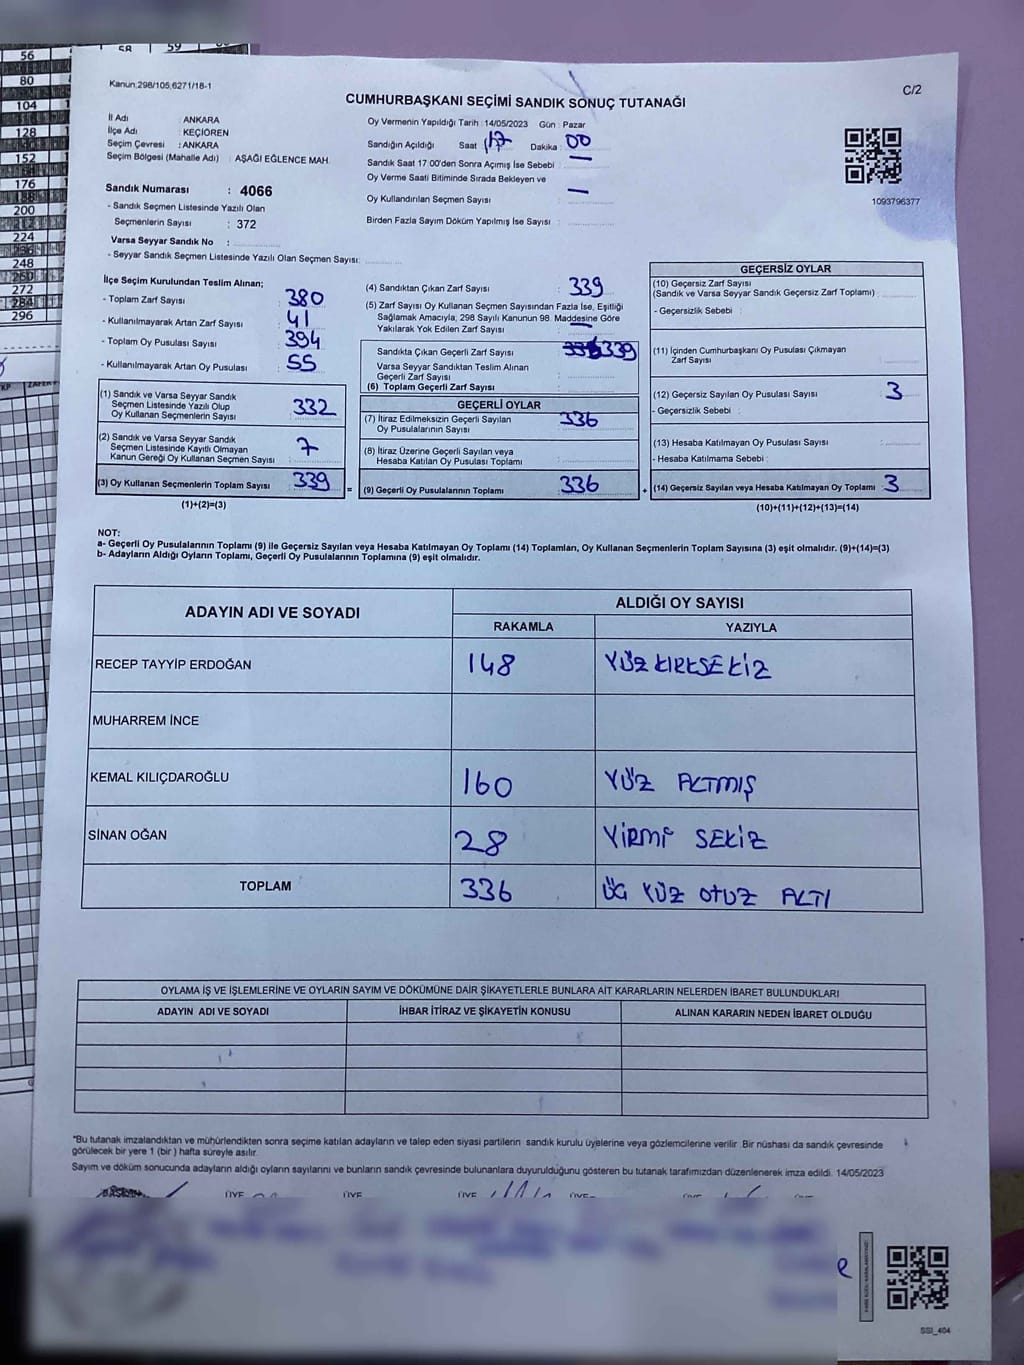 56
80
104
128
152
176
200
224
248
272
296
59
Kanun;298/105,6271/18-1
C/2
CUMHURBAŞKANI SEÇİMİ SANDIK SONUÇ TUTANAĞI
İl Adı : ANKARA
İlçe Adı : KEÇİÖREN
Seçim Çevresi : ANKARA
Seçim Bölgesi (Mahalle Adı) : AŞAĞI EĞLENCE MAH.
Sandık Numarası : 4066
- Sandık Seçmen Listesinde Yazılı Olan
Seçmenlerin Sayısı : 372
Varsa Seyyar Sandık No :
- Seyyar Sandık Seçmen Listesinde Yazılı Olan Seçmen Sayısı:
Oy Vermenin Yapıldığı Tarih :14/05/2023 Gün : Pazar
Sandığın Açıldığı Saat : 17 Dakika : 00
Sandık Saat 17:00'den Sonra Açımış İse Sebebi : —
Oy Verme Saati Bitiminde Sırada Bekleyen ve
Oy Kullandırılan Seçmen Sayısı : —
Birden Fazla Sayım Döküm Yapılmış İse Sayısı :
1093796377
İlçe Seçim Kurulundan Teslim Alınan;
- Toplam Zarf Sayısı : 380
- Kullanılmayarak Artan Zarf Sayısı : 41
- Toplam Oy Pusulası Sayısı : 394
- Kullanılmayarak Artan Oy Pusulası : 55
(1) Sandık ve Varsa Seyyar Sandık
Seçmen Listesinde Yazılı Olup
Oy Kullanan Seçmenlerin Sayısı : 332
(2) Sandık ve Varsa Seyyar Sandık
Seçmen Listesinde Kayıtlı Olmayan
Kanun Gereği Oy Kullanan Seçmen Sayısı : 7
(3) Oy Kullanan Seçmenlerin Toplam Sayısı : 339
(1)+(2)=(3)
=
(4) Sandıktan Çıkan Zarf Sayısı : 339
(5) Zarf Sayısı Oy Kullanan Seçmen Sayısından Fazla İse, Eşitliği
Sağlamak Amacıyla, 298 Sayılı Kanunun 98. Maddesine Göre
Yakılarak Yok Edilen Zarf Sayısı : —
Sandıkta Çıkan Geçerli Zarf Sayısı : 339
Varsa Seyyar Sandıktan Teslim Alınan
Geçerli Zarf Sayısı :
(6) Toplam Geçerli Zarf Sayısı :
GEÇERLİ OYLAR
(7) İtiraz Edilmeksizin Geçerli Sayılan
Oy Pusulalarının Sayısı : 336
(8) İtiraz Üzerine Geçerli Sayılan veya
Hesaba Katılan Oy Pusulası Toplamı :
(9) Geçerli Oy Pusulalarının Toplamı : 336
+
GEÇERSİZ OYLAR
(10) Geçersiz Zarf Sayısı
(Sandık ve Varsa Seyyar Sandık Geçersiz Zarf Toplamı) :
- Geçersizlik Sebebi :
(11) İçinden Cumhurbaşkanı Oy Pusulası Çıkmayan
Zarf Sayısı :
(12) Geçersiz Sayılan Oy Pusulası Sayısı : 3
- Geçersizlik Sebebi :
(13) Hesaba Katılmayan Oy Pusulası Sayısı :
- Hesaba Katılmama Sebebi :
(14) Geçersiz Sayılan veya Hesaba Katılmayan Oy Toplamı : 3
(10)+(11)+(12)+(13)=(14)
NOT:
a- Geçerli Oy Pusulalarının Toplamı (9) ile Geçersiz Sayılan veya Hesaba Katılmayan Oy Toplamı (14) Toplamları, Oy Kullanan Seçmenlerin Toplam Sayısına (3) eşit olmalıdır. (9)+(14)=(3)
b- Adayların Aldığı Oyların Toplamı, Geçerli Oy Pusulalarının Toplamına (9) eşit olmalıdır.
ADAYIN ADI VE SOYADI
ALDIĞI OY SAYISI
RAKAMLA YAZIYLA
RECEP TAYYİP ERDOĞAN 148 YÜZ KIRKSEKİZ
MUHARREM İNCE
KEMAL KILIÇDAROĞLU 160 YÜZ ALTMIŞ
SİNAN OĞAN 28 YİRMİ SEKİZ
TOPLAM 336 ÜÇ YÜZ OTUZ ALTI
OYLAMA İŞ VE İŞLEMLERİNE VE OYLARIN SAYIM VE DÖKÜMÜNE DAİR ŞİKAYETLERLE BUNLARA AİT KARARLARIN NELERDEN İBARET BULUNDUKLARI
ADAYIN ADI VE SOYADI İHBAR İTİRAZ VE ŞİKAYETİN KONUSU ALINAN KARARIN NEDEN İBARET OLDUĞU
*Bu tutanak imzalandıktan ve mühürlendikten sonra seçime katılan adayların ve talep eden siyasi partilerin sandık kurulu üyelerine veya gözlemcilerine verilir. Bir nüshası da sandık çevresinde
görülecek bir yere 1 (bir ) hafta süreyle asılır.
Sayım ve döküm sonucunda adayların aldığı oyların sayılarını ve bunların sandık çevresinde bulunanlara duyurulduğunu gösteren bu tutanak tarafımızdan düzenlenerek imza edildi. 14/05/2023
BAŞKAN ÜYE ÜYE ÜYE ÜYE
SSI_404